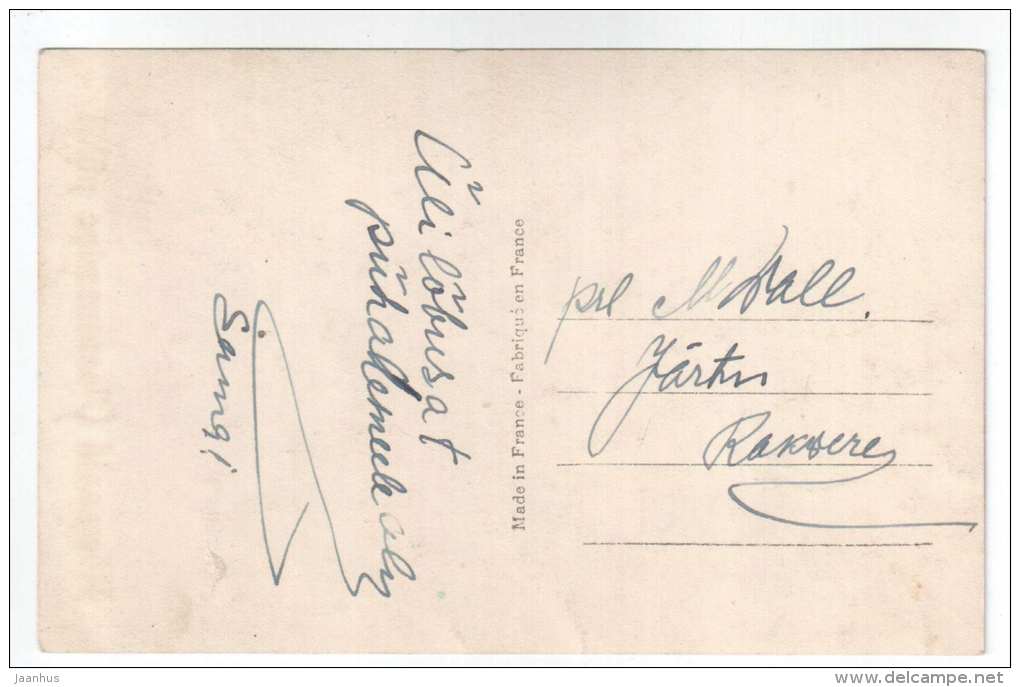 Üli lõbusat
pühademeeleolu
Made in France - Fabriqué en France
prl M Dall.
Järtu
Rakvere
jaanhus
www.delcampe.net